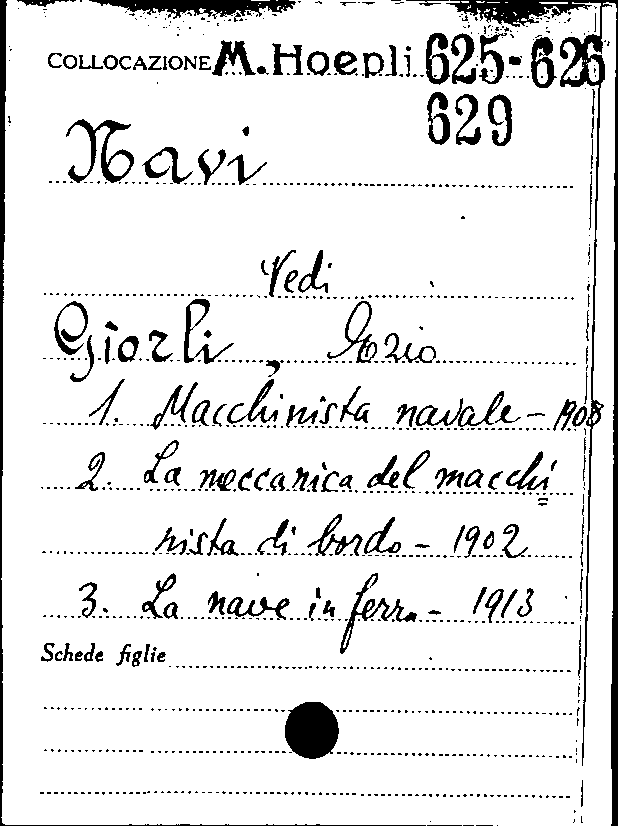 COLLOCAZIONE M. Hoepli 625-626
629
Navi
Vedi
Giorli, Ezio
1. Macchinista navale - 1908
2. La meccanica del macchi=
nista di bordo - 1902
3. La nave in ferro - 1913
Schede figlie